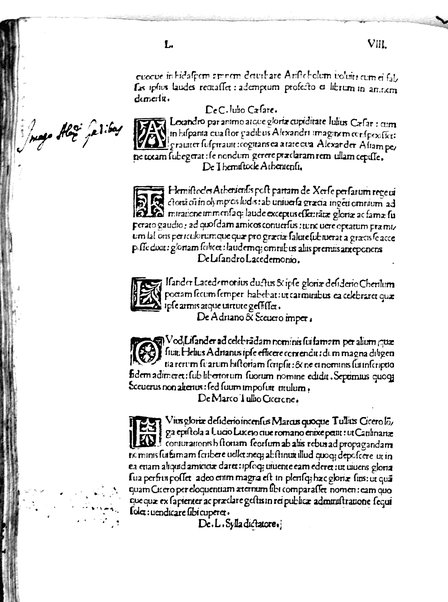 L. VIII.
Imago Alexi Gadibus
De C. Iulio Cæsare.
ALexandro par animo atque gloriæ cupiditate Iulius Cæsar: cum
in hispania quæstor gadibus Alexandri imaginem conspexisset:
grauiter suspirauit: cogitans ea ætate qua Alexander Asiam pe
ne totam subegerat: se nondum gerere præclaram rem ullam cepisse.
De Themistocle Atheniensi.
THemistocles Atheniensis post partam de Xerse persarum rege ui
ctoriam cum in olympicis ludis: ab universa græcia ingenti omnium ad
miratione immensaq; laude exceptus esset: ratæ gloriæ ac famæ su
perato gaudio: ad quosdam amicos conuersus: tunc uere optatum præmi
um laboris periculorumque quæ pro græciæ salute subiuerat a græcis se acce
pisse duxit: gloriam scilicet: laudemq; omnibus aliis premiis anteponens
De Lisandro Lacedemonio.
LIsander Lacedemonius ductus & ipse gloriæ desiderio Cherilum
poetam secum semper habebat: ut carminibus ea celebraret quæ
ipse armis atque uirtute gessisset.
De Adriano & Seuero imper.
QVod Lisander ad celebrandam nominis sui famam per alium quæ
siuit. Helius Adrianus ipse efficere contendit: dum magna diligen
tia rerum suarum historiam scripsit: & ne ei nominis sui inscriptio
fidem adimeret: sub libertorum suorum nomine edidit. Septimius quoq;
Seuerus non alterius: sed suum imposuit titulum.
De Marco Tullio Cicerone.
HVius gloriæ desiderio incensus Marcus quoque Tullius Cicero lõ
ga epistola a Lucio Luceio que romano enixe petit: ut Catilinariæ
coniurationis historiam seorsum ab aliis rebus ad propagandam
nominis sui famam scribere uellet: neq; abstinuit illud quoq; deposcere ut in
ea etiam aliquid amiciciæ daret: ipsoq; uiuente eam ederet: ut uiuens gloria
sua perfrui posset adeo enim magna est in plerisq; hæc gloriæ sitis: ut quã
quam Cicero per eloquentiam æternum sibi comparasset nomen: eam quo
que quæ ex sapienter ac præclare gestis in rei publicæ administratione sequi
solet: uendicare sibi cuperet.
De. L. Sylla dictatore.